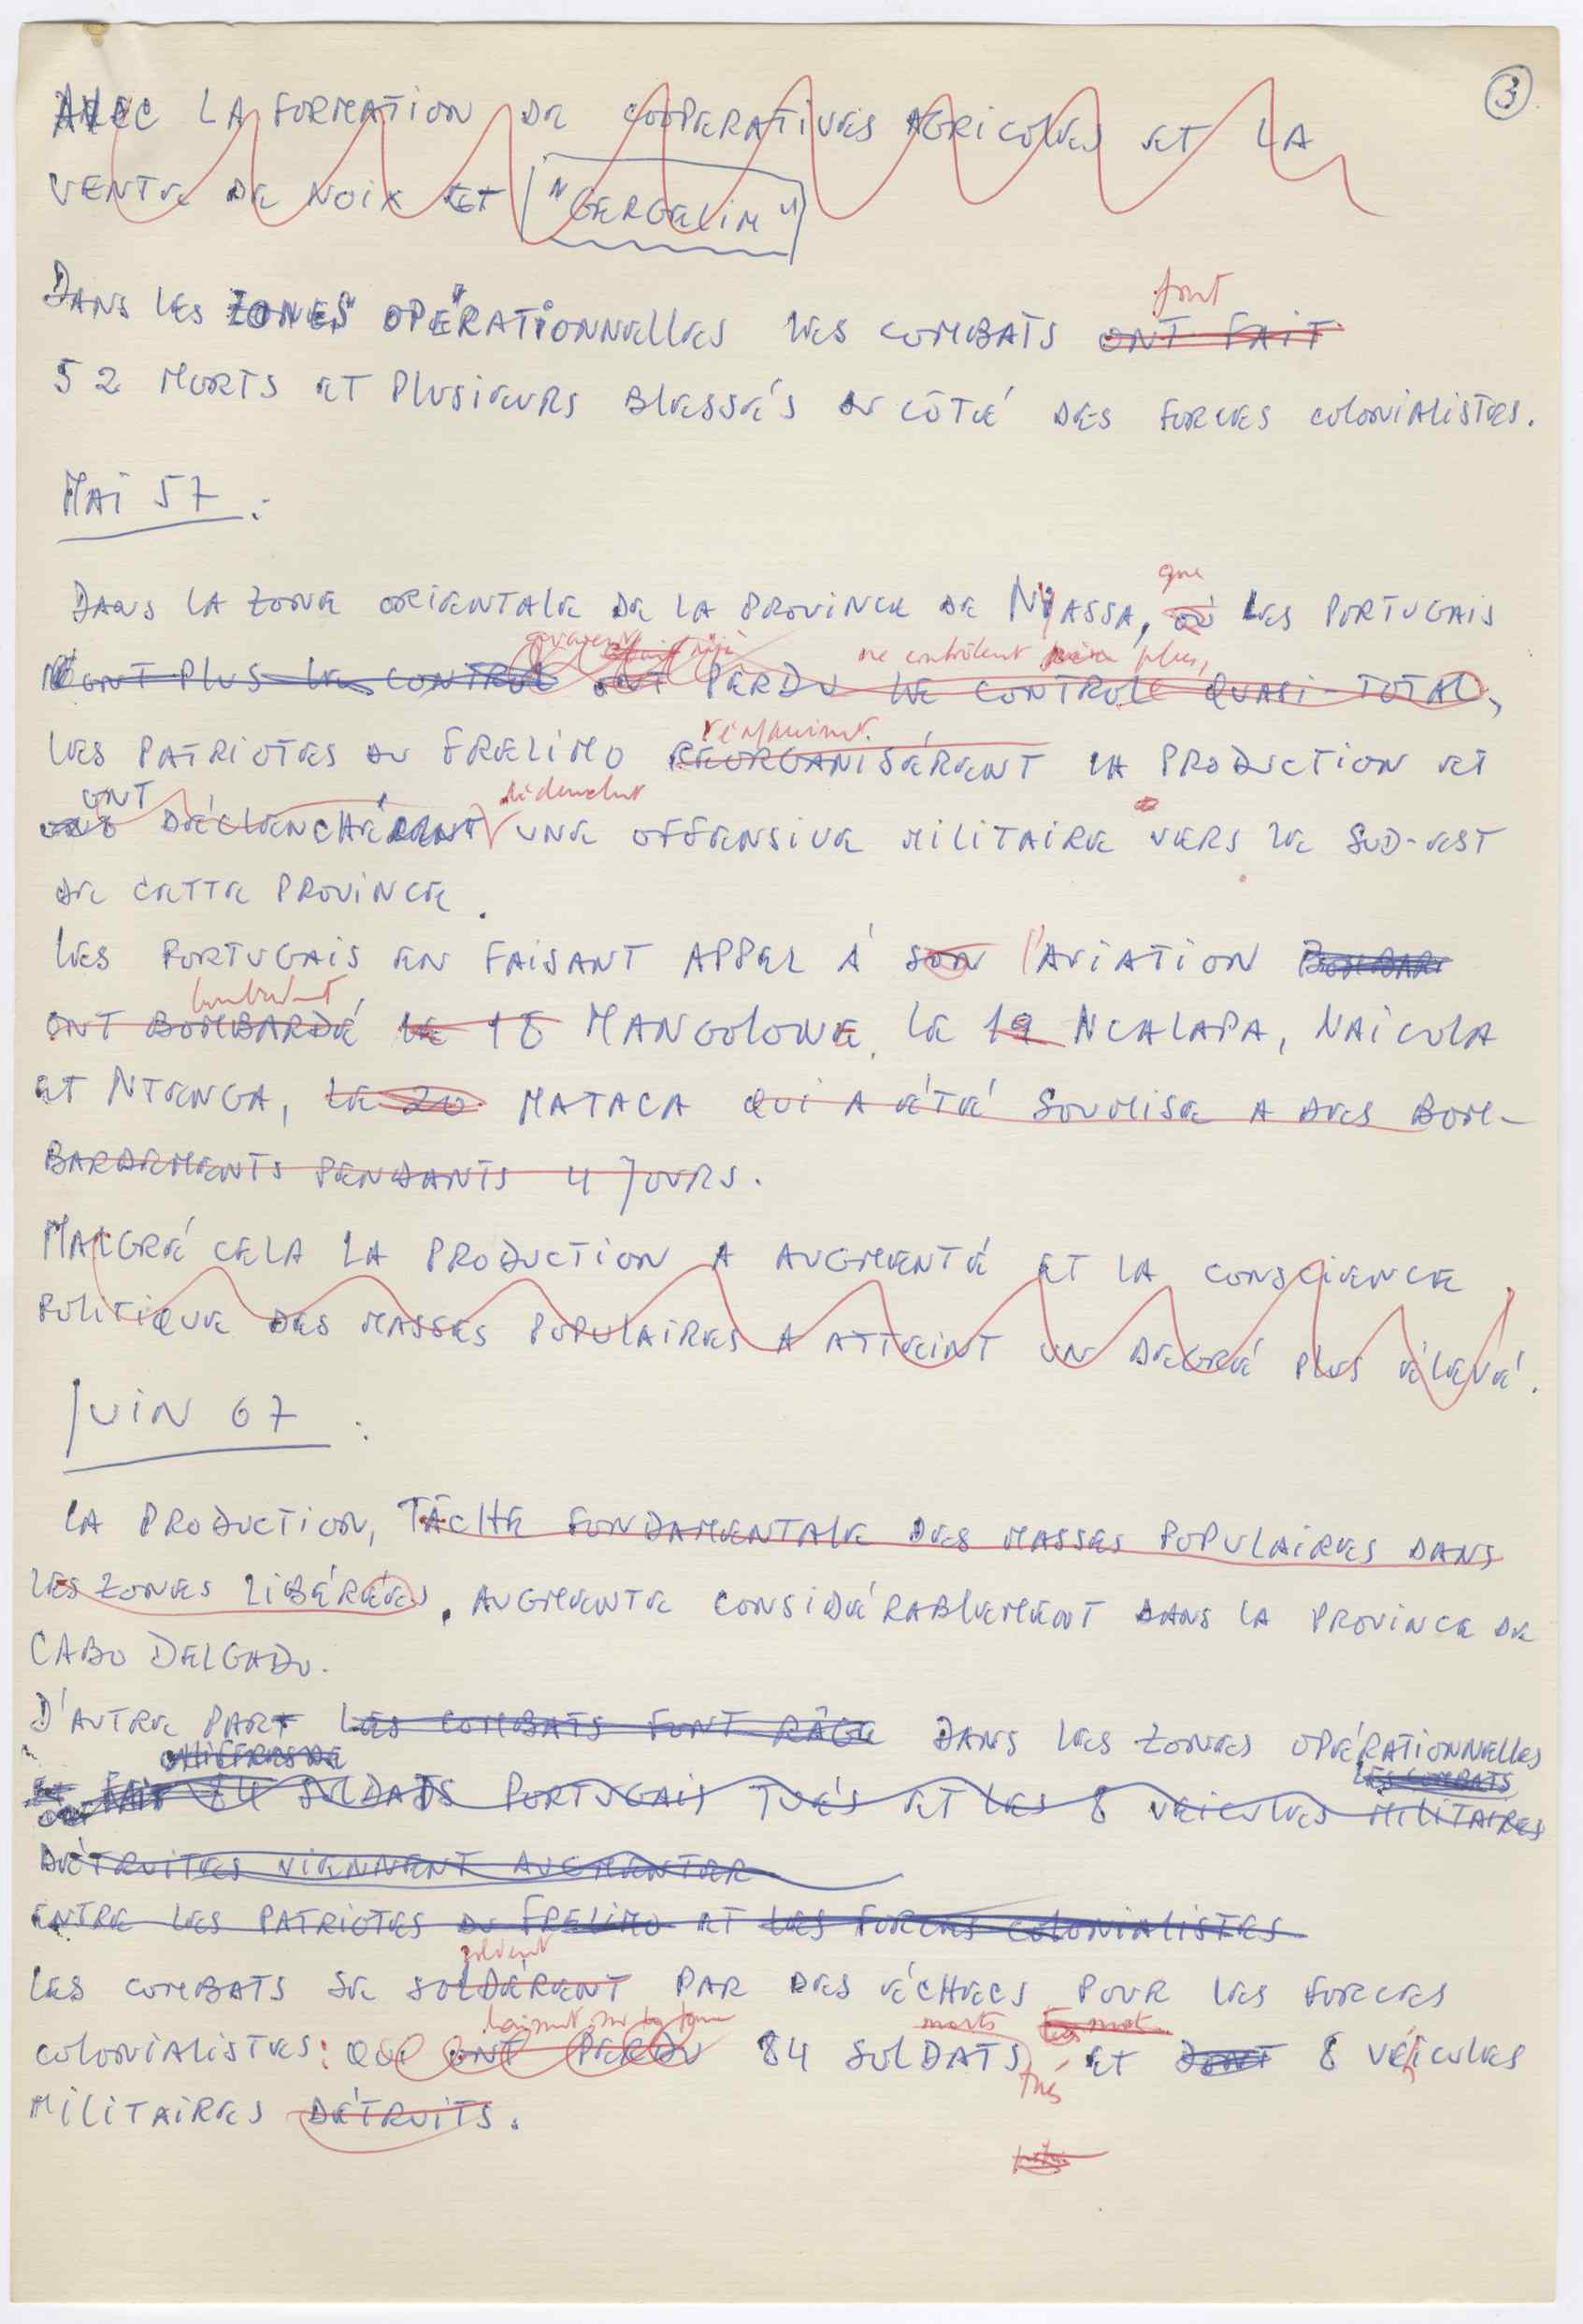 3
AVEC LA FORMATION DE COOPERATIVES AGRICOLES ET LA
VENTE DE NOIX ET "GERGELIM"
font
DANS LES ZONES OPÉRATIONNELLES LES COMBATS ONT FAIT
52 MORTS ET PLUSIEURS BLESSÉS DU CÔTÉ DES FORCES COLONIALISTES.
MAI 57 :
que
DANS LA ZONE ORIENTALE DE LA PROVINCE DE NYASSA, OÙ LES PORTUGAIS
ne contrôlent plus,
N'ONT PLUS LE CONTROL ONT PERDU LE CONTROLE QUASI-TOTAL,
réorganisent
LES PATRIOTES DU FRELIMO RÉORGANISÈRENT LA PRODUCTION ET
ONT déclenchent
DÉCLENCHÈRENT UNE OFFENSIVE MILITAIRE VERS LE SUD-EST
DE CETTE PROVINCE.
LES PORTUGAIS EN FAISANT APPEL À SON l'AVIATION BOMBAR
bombardent
ONT BOMBARDÉ LE 18 MANGOLONE, LE 19 NCALAPA, NAICULA
ET NTENGA, LE 20 MATACA QUI A ÉTÉ SOUMISE A DES BOM-
BARDEMENTS PENDANTS 4 JOURS.
MALGRÉ CELA LA PRODUCTION A AUGMENTÉ ET LA CONSCIENCE
POLITIQUE DES MASSES POPULAIRES A ATTEINT UN DEGRÉ PLUS ÉLEVÉ.
JUIN 67 :
LA PRODUCTION, TÂCHE FONDAMENTALE DES MASSES POPULAIRES DANS
LES ZONES LIBÉRÉES, AUGMENTE CONSIDÉRABLEMENT DANS LA PROVINCE DE
CABO DELGADO.
D'AUTRE PART LES COMBATS FONT RÂGE DANS LES ZONES OPÉRATIONNELLES
CHIFFRES DE LES COMBATS
FAIT 84 SOLDATS PORTUGAIS TUÉS ET LES 8 VEICULES MILITAIRES
DÉTRUITES VIENNENT AUGMENTER
ENTRE LES PATRIOTES DU FRELIMO ET LES FORCES COLONIALISTES
soldent
LES COMBATS SE SOLDÈRENT PAR DES ÉCHECS POUR LES FORCES
morts
COLONIALISTES: QUI ONT PERDU 84 SOLDATS tués ET DONT 8 VÉHICULES
MILITAIRES DÉTRUITS.